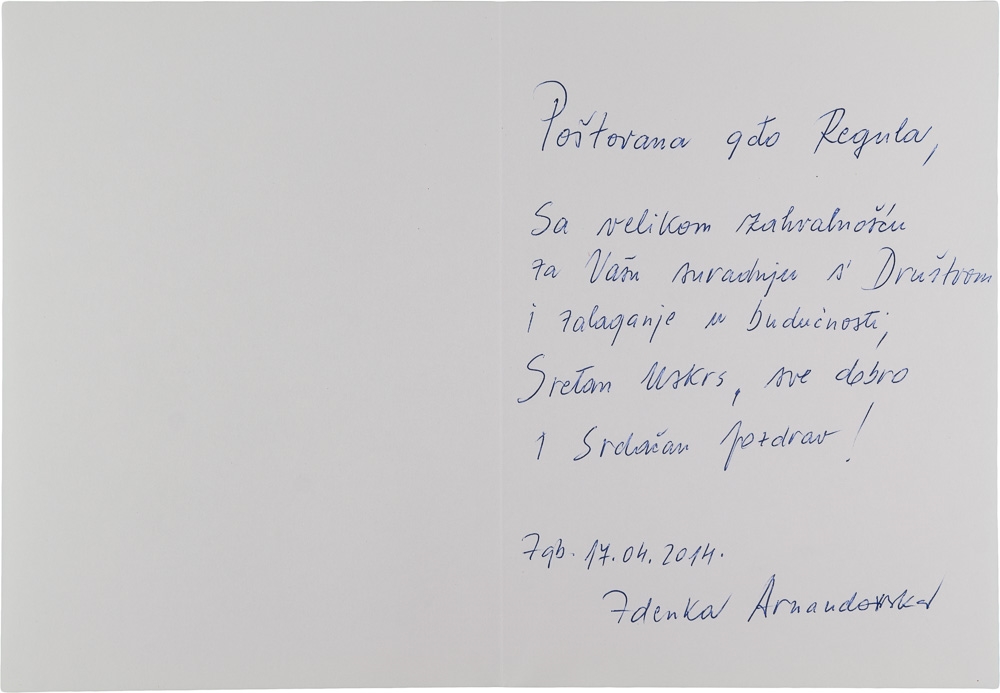 Poštovana gđo Regula,
Sa velikom zahvalnošću
za Vašu suradnju s' Društvom
i zalaganje u budućnosti,
Sretan Uskrs, sve dobro
i Srdačan pozdrav!
Zgb. 17.04.2014.
Zdenka Arnandovska